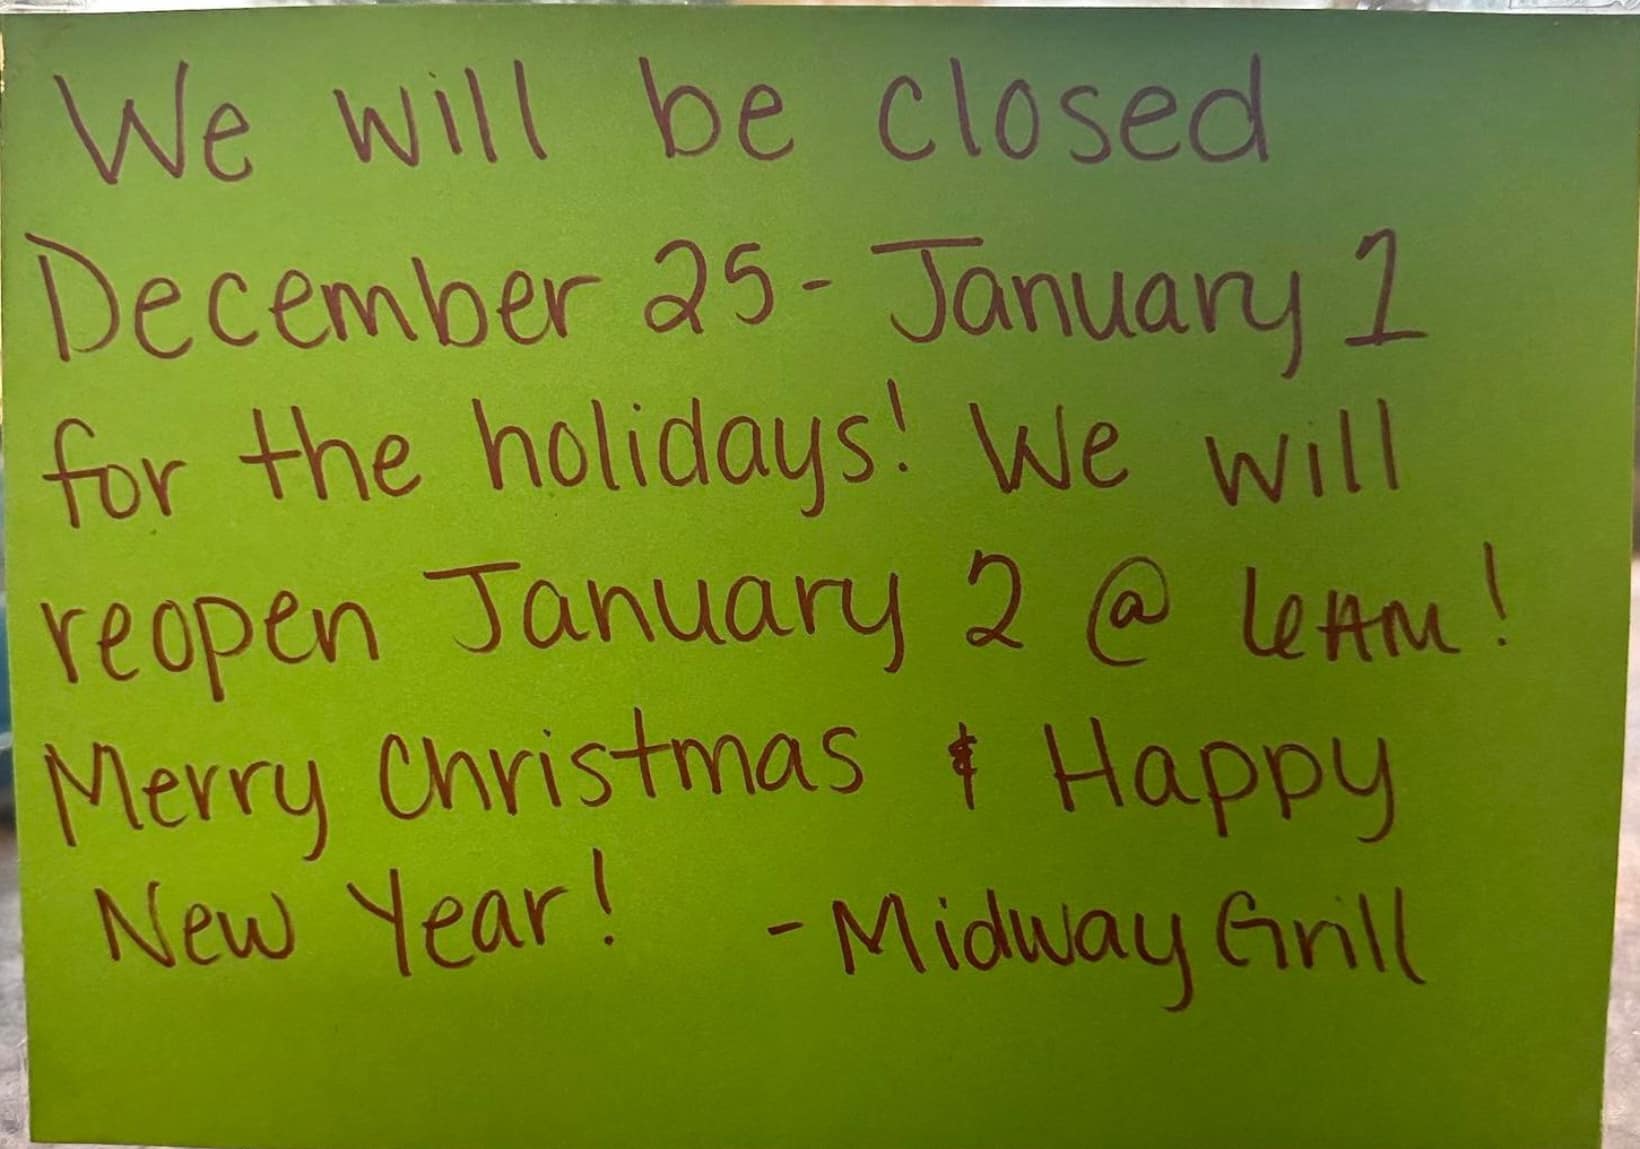 We will be closed
December 25 - January 1
for the holidays! We will
reopen January 2 @ 6AM!
Merry Christmas & Happy
New Year! - Midway Grill